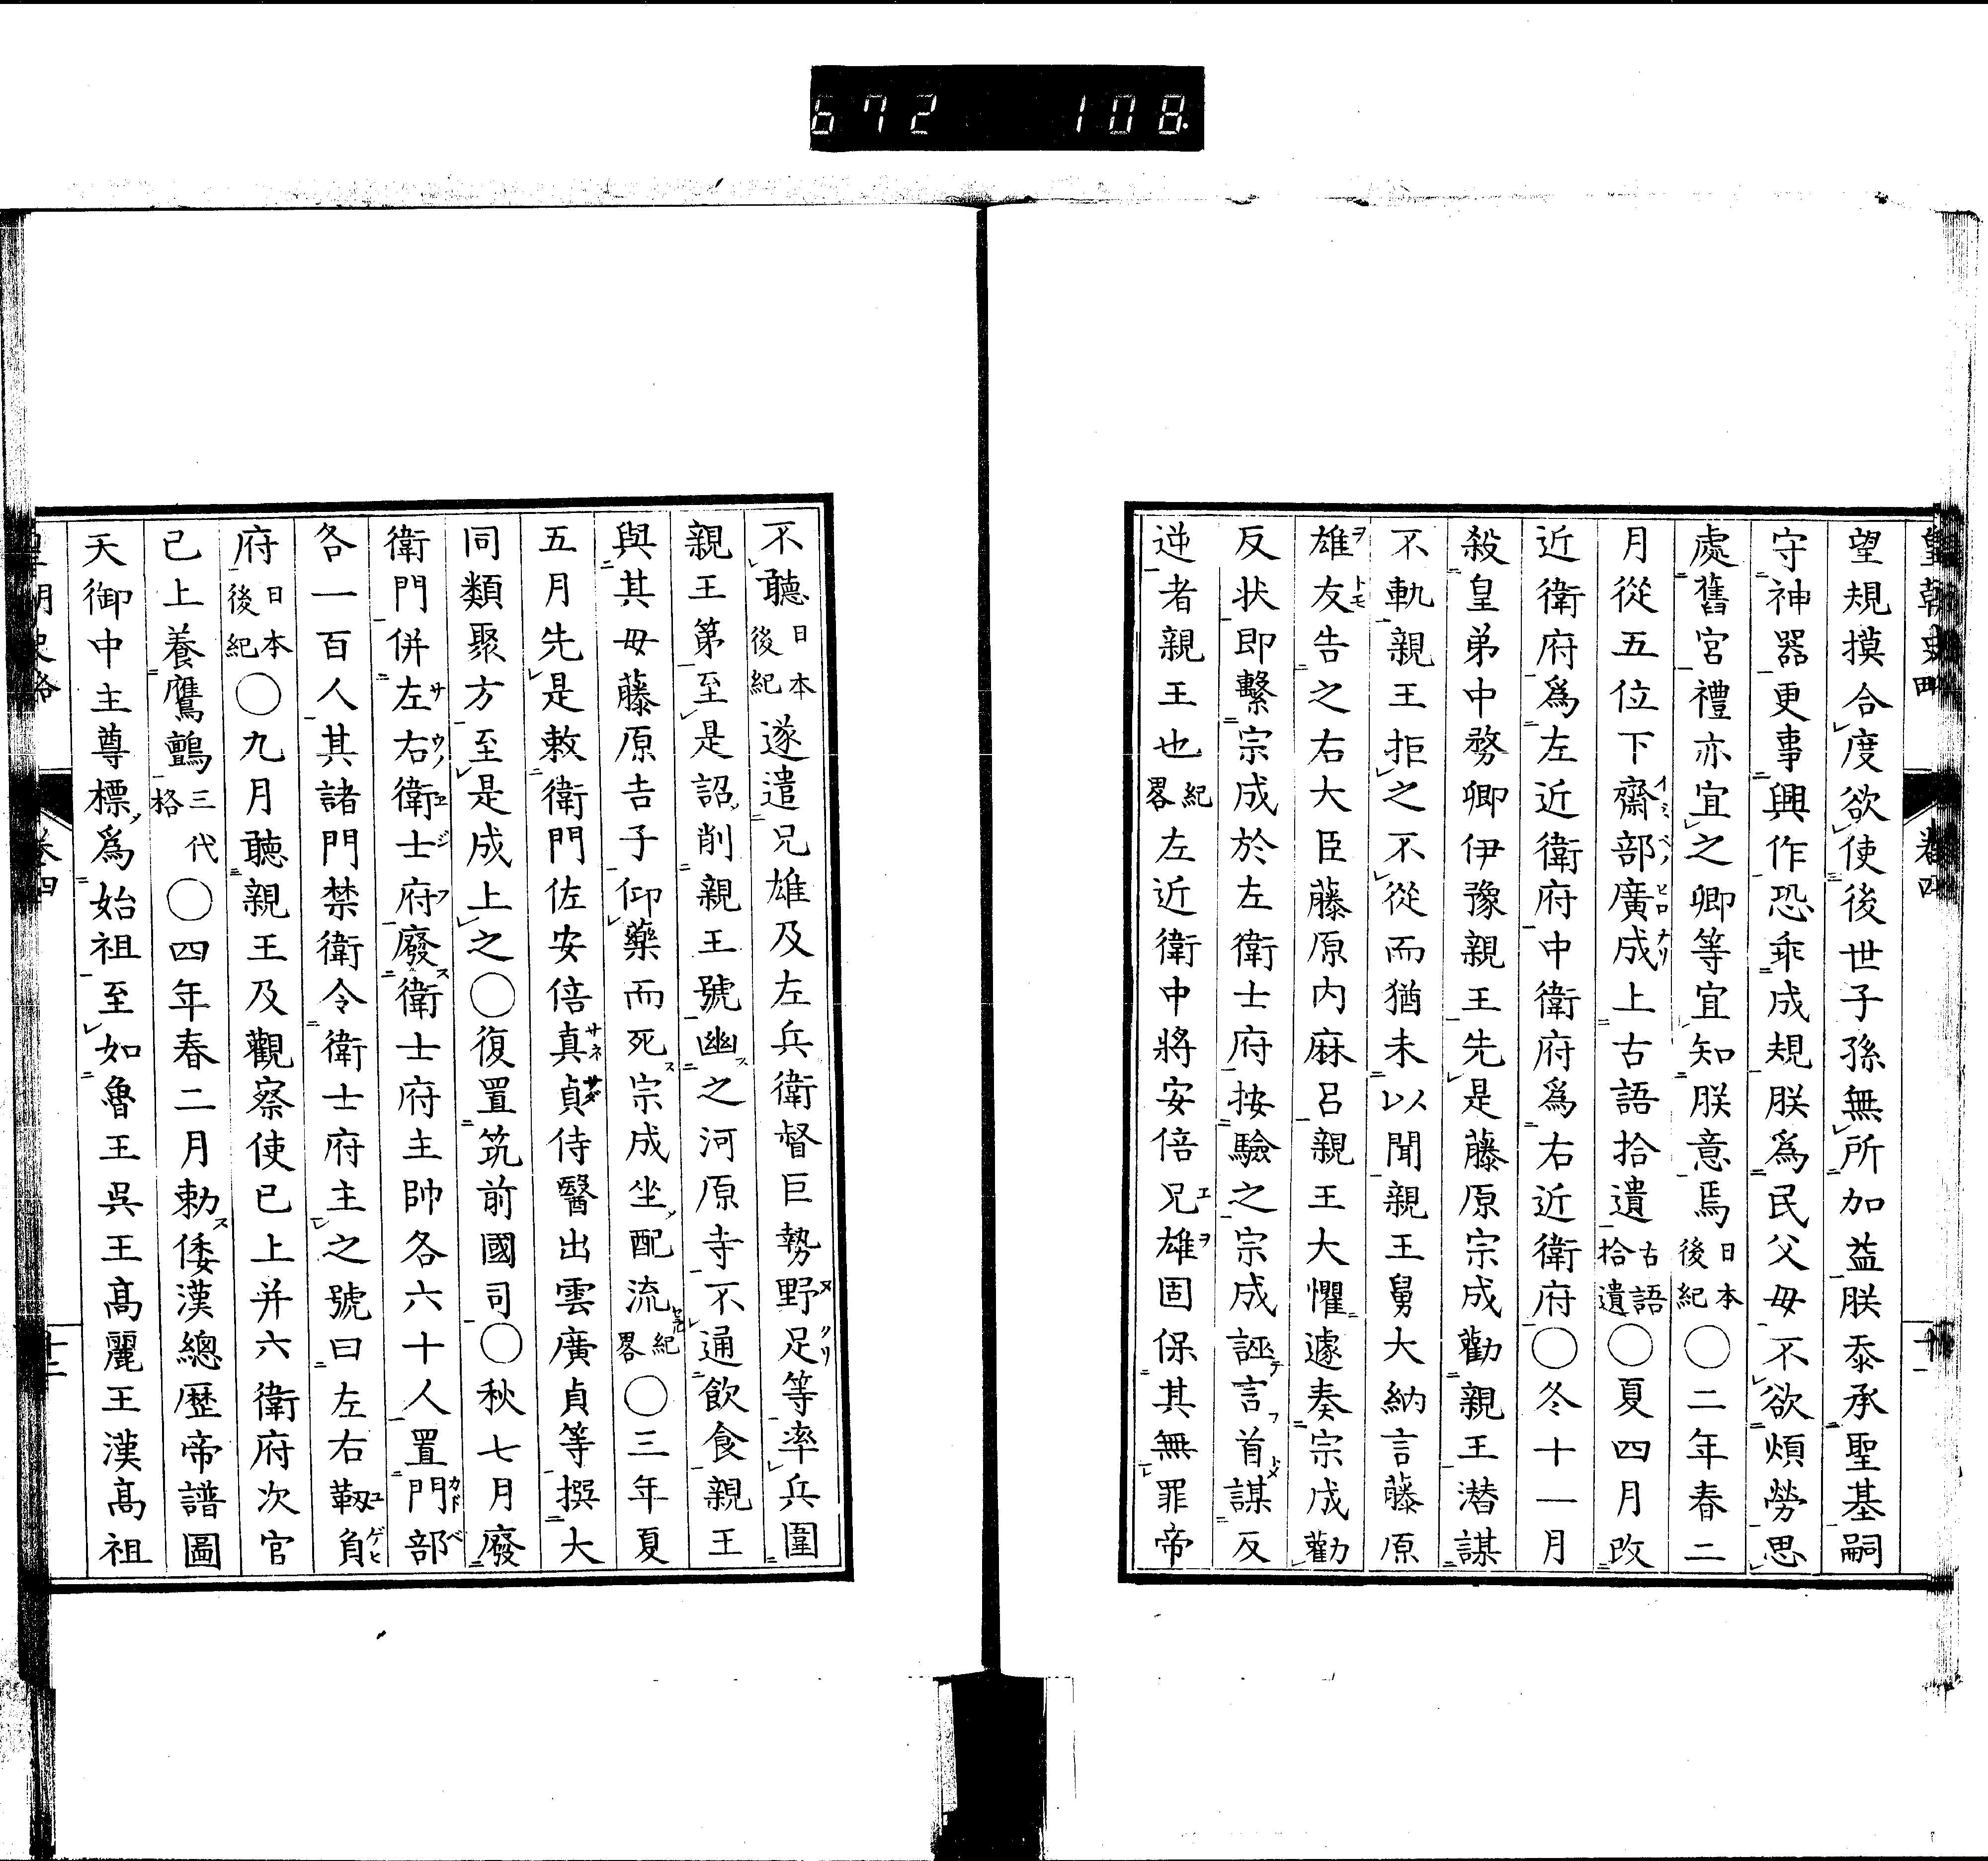 672 108
皇朝史略 卷四 十一
望規摸合度欲使後世子孫無所加益朕忝承聖基嗣
守神器更事興作恐乖成規朕爲民父母不欲煩勞思
處舊宮禮亦宜之卿等宜知朕意焉日本後紀〇二年春二
月從五位下齋部廣成上古語拾遺古語拾遺〇夏四月改
近衛府爲左近衛府中衛府爲右近衛府〇冬十一月
殺皇弟中務卿伊豫親王先是藤原宗成勸親王潜謀
不軌親王拒之不從而猶未以聞親王舅大納言藤原
雄友告之右大臣藤原内麻呂親王大懼遽奏宗成勸
反状即繫宗成於左衛士府按驗之宗成誣言首謀反
逆者親王也紀畧左近衛中將安倍兄雄固保其無罪帝
不聽日本後紀遂遣兄雄及左兵衛督巨勢野足等率兵圍
親王第至是詔削親王號幽之河原寺不通飲食親王
與其母藤原吉子仰藥而死宗成坐配流紀畧〇三年夏
五月先是敕衛門佐安倍真貞侍醫出雲廣貞等撰大
同類聚方至是成上之〇復置筑前國司〇秋七月廢
衛門併左右衛士府廢衛士府主帥各六十人置門部
各一百人其諸門禁衛令衛士府主之號曰左右靱負
府日本後紀〇九月聽親王及觀察使已上并六衛府次官
已上養鷹鸇三代格〇四年春二月勅倭漢總歷帝譜圖
天御中主尊標爲始祖至如魯王吳王高麗王漢高祖
皇朝史略 卷四 十二